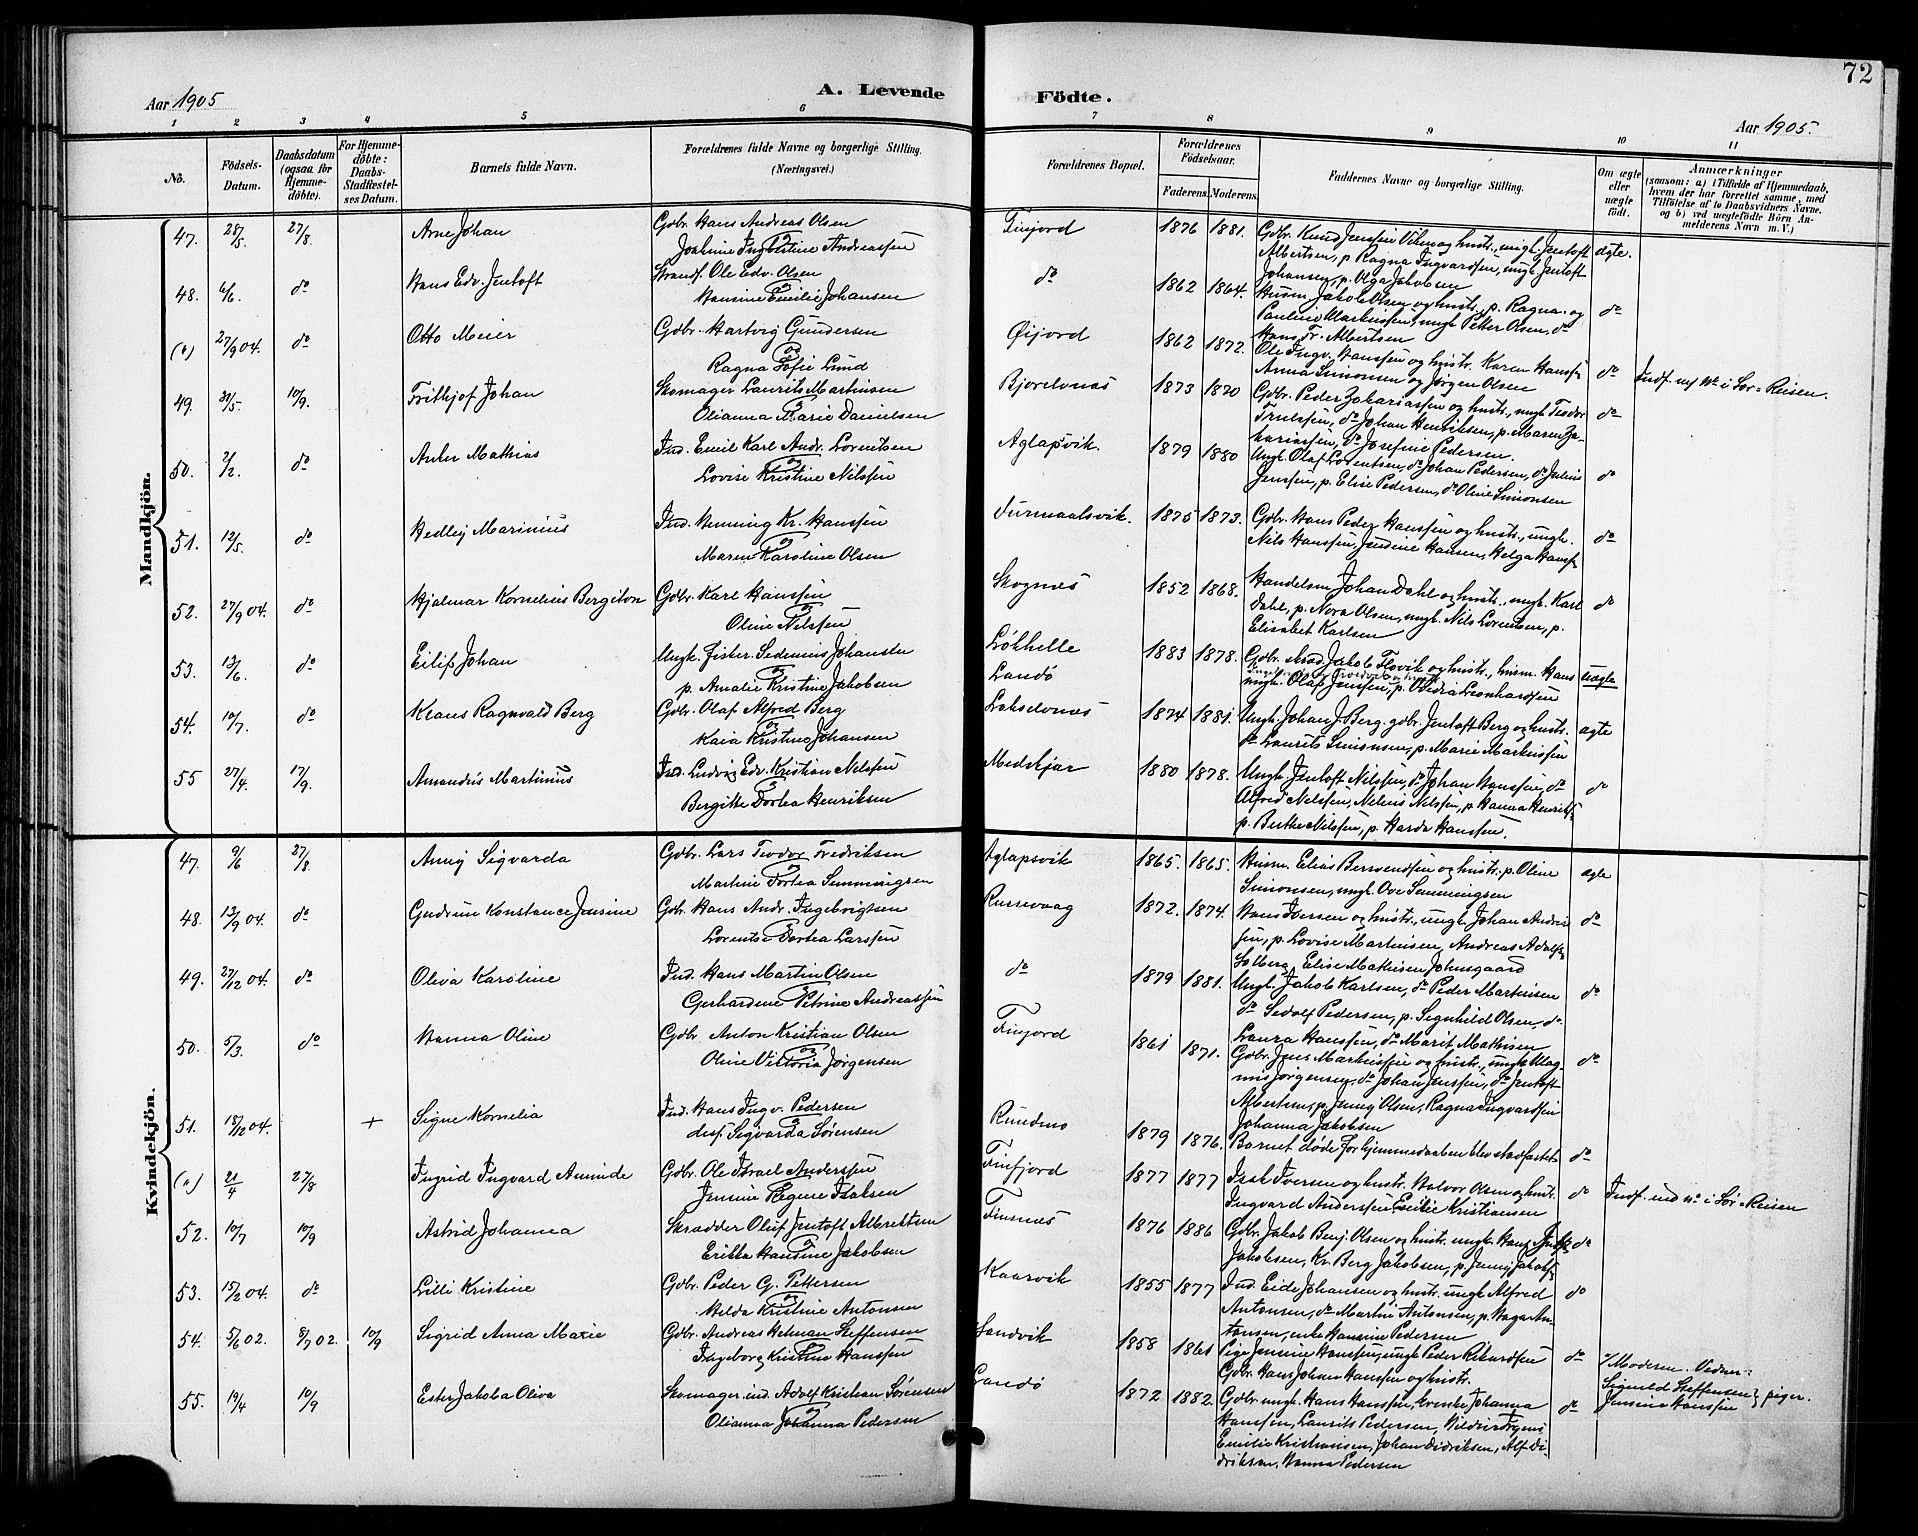 72
Aar 1905
A. Levende
Födte.
Aar 1905.
1 2 3 4 5 6 7 8 9 10 11
No.
Födsels-
Datum.
Daabsdatum
(ogsaa for
Hjemme-
döbte).
For Hjemme-
döbte:
Daabs-
Stadfæstel-
ses Datum.
Barnets fulde Navn.
Forældrenes fulde Navne og borgerlige Stilling.
(Næringsvei.)
Forældrenes Bopæl.
Forældrenes
Födselsaar.
Faderens. Moderens.
Faddernes Navne og borgerlige Stilling.
Om ægte
eller
uægte
födt.
Anmærkninger
(saasom: a) i Tilfælde af Hjemmedaab,
hvem der har forrettet samme, med
Tilföielse af to Daabsvidners Navne,
og b) ved uægtefödte Börn An-
melderens Navn m. V.)
Mandkjön.
47. 28/5 27/8. Arne Johan Gdbr. Hans Andreas Olsen
og
Joakime Ingbertine Andreassen
Finjord 1876 1881. Gdbr. Knud Jenssen Viken og hustr., ungk. Jentoft
Albertsen, p. Ragna Ingvardsen, ungk. Jentoft
Johansen, p. Olga Jakobsen
ægte.
48. 6/6. do Hans Edv. Jentoft Strands. Ole Edv. Olsen
og
Hansine Emilie Johansen
do 1862 1864. Husm. Jakob Olsen og hustr., p. Ragna og
Pauline Markussen, ungk. Petter Olsen, do
Hans Fr. Albertsen
do
(a) 27/9 04. do Otto Meier Gdbr. Hartvig Gundersen
og
Ragna Sofie Lund
Øijord 1862 1872. Ole Ingv. Hanssen og hustr. Karen Hanss.
Anna Simonsen og Jørgen Olsen
do Indf. uf No i Sør-Reisen.
49. 30/5. 10/9. Frithjof Johan Skomager Laurits Martinsen
og
Olianna Marie Danielsen
Bjorelvnæs 1873 1870 Gdbr. Peder Zakariassen og hustr., ungk. Teodor
Trulssen, do Johan Henriksen, p. Maren Za-
kariassen, do Josefine Pedersen.
do
50. 2/2. do Anker Mathias Ind. Emil Karl Andr. Lorentsen
og
Lovise Kristine Nilssen
Aglapsvik. 1879 1880 Ungk. Olaf Lorentsen, do Johan Pedersen, do Julius
Jenssen, p. Elise Pedersen, do Oline Simonsen
do
51. 12/5. do Hedley Marinius Ind. Henning Kr. Hanssen
og
Maren Karoline Olsen
Furmaalsvik. 1875 1873. Gdbr. Hans Peder Hanssen og hustr., ungk.
Nils Hanssen, Jendine Hansen, Helga Hanss.
do
52. 27/9 04. do Hjalmar Kornelius Bergiton Gdbr. Karl Hanssen
og
Oline Nilssen
Skognæs 1852 1868. Handelsm. Johan Dahl og hustr., ungk. Karl
Dahl, p. Nora Olsen, ungk. Nils Lorentsen, p.
Elisabet Karlsen
do
53. 13/6. do Eilif Johan Ungk. fisker Sedenius Johansen
og
p. Amalie Kristine Jakobsen
Løkhelle
Landö
1883 1878. Gdbr. skræd. Jakob Flovik og hustr., husm. Hans
ungk. Olaf Jenssen, p. Leonhardsen
uægte
54. 10/7. do Klaus Ragnvald Berg Gdbr. Olaf Alfred Berg
og
Kaia Kristine Johansen
Lakselvnæs 1874 1881. Ungk. Johan J. Berg, gdbr. Jentoft Berg og hustr.
do Laurits Simonsen, p. Marie Markussen
ægte
55 27/4. 17/9. Amandus Martinus Ind. Ludvig Edv. Kristian Nilssen
og
Bergitte Dortea Henriksen
Medskjær 1880 1878. Ungk. Jentoft Nilssen, do Johan Hanssen, do
Alfred Nilssen, Nelius Nilssen, p. Hanna Henriks.
p. Berthe Nilssen, p. Harda Hanssen.
do
Kvindekjön.
47. 9/6 27/8. Anny Sigvarda Gdbr. Lars Teodor Fredriksen
og
Martine Dortea Simmingsen
Aglapsvik 1865. 1865. Husm. Elias Berntsen og hustr. p. Oline
Simonsen, ungk. Ove Semmingsen
ægte
48. 13/9 04. do Gudrun Konstance Jensine Gdbr. Hans Andr. Ingebrigtsen
og
Lorentse Dortea Larssen
Russevaag 1872. 1874. Hans Iversen og hustr., ungk. Johan Andrea-
sen, p. Lovise Mathisen, Andreas Adolfs.
Solberg, Elise Mathisen Johnsgaard
do
49. 27/12 04. do Oliva Karoline Ind. Hans Martin Olsen
og
Gerhardine Petrine Andreassen
do 1879 1881. Ungk. Jakob Karlsen, do Peder Martinsen
do Sedolf Pedersen, p. Segnhild Olsen, do
Laura Hanssen, do Marit Mathisen
do
50. 5/3. do Hanna Oline Gdbr. Anton Kristian Olsen
og
Oline Viktoria Jørgensen
Finfjord 1861 1871. Gdbr. Jens Markussen og hustr., ungk. Mag-
nus Jørgensen, do Johan Jenssen, do Jentoft
Albertsen, p. Jenny Olsen, Ragna Ingvardsen
Johanna Jakobsen
do
51. 18/12 04. + Signe Kornelia Ind. Hans Ingv. Pedersen
og
Sigvarda Sørensen
Rundmo 1879 1876. Barnet døde før hjemmedaaben blev stadfæstet
do
(a) 21/4 27/8 Ingrid Ingvard Aminde Gdbr. Ole Israel Anderssen
og
Jensine Regine Isaksen
Finfjord 1877 1877 Isak Iversen og hustr. Halvor Olsen og hustr.
Ingvard Anderssen Emilie Kristiansen
do Indf. und. No i Sør-Reisen
52. 10/7 10/9 Astrid Johanna Skrædder Oluf Jentoft Albrektsen
og
Erikka Hansine Jakobsen
Finnæs 1876 1886 Gdbr. Jakob Benj. Olsen og hustr. ungk. Hans
Jakobsen, Kr. Berg Jakobsen, p. Jenny Jakobs.
do
53. 15/2 04. do Lilli Kristine Gdbr. Peder G. Pettersen
og
Hilda Kristine Antonsen
Kaarvik 1855 1877 Ind. Eide Johansen og hustr. ungk. Alfred
Antonsen, do Martin Antonsen, p. Hagar An-
tonsen, enke Hansine Pedersen
do
54. 5/6 02. 8/7 02. 10/9 Sigrid Anna Marie Gdbr. Andreas Helman Steffensen
og
Ingeborg Kristine Hanssen
Sandvik 1858 1861 Pige Jensine Hanssen, ungk. Peder Rikardsen
Gdbr. Hans Johan Hanssen og hustr.
do Moderen. Vidner:
Sigvald Steffensen
Jensine Hanssen piger.
55. 19/4 10/9 Ester Jakoba Oliva Skomager, ind. Adolf Kristian Sørensen
og
Olianna Johanna Pedersen
Landö 1872 1882. Gdbr. ungk. Hans Hanssen, Johanna
Hanssen, Laurits Pedersen,
Emilie Kristiansen, Johan Didriksen, Alf Di-
driksen, Hanna Pedersen
do